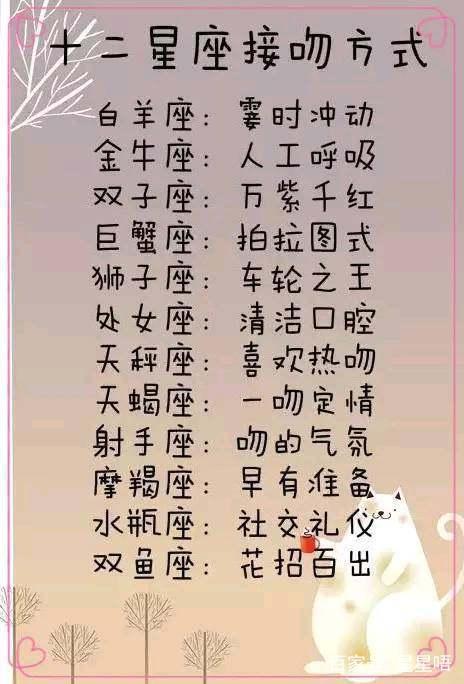 十二星座接吻方式
白羊座：霎时冲动
金牛座：人工呼吸
双子座：万紫千红
巨蟹座：拍拉图式
狮子座：车轮之王
处女座：清洁口腔
天秤座：喜欢热吻
天蝎座：一吻定情
射手座：吻的气氛
摩羯座：早有准备
水瓶座：社交礼仪
双鱼座：花招百出